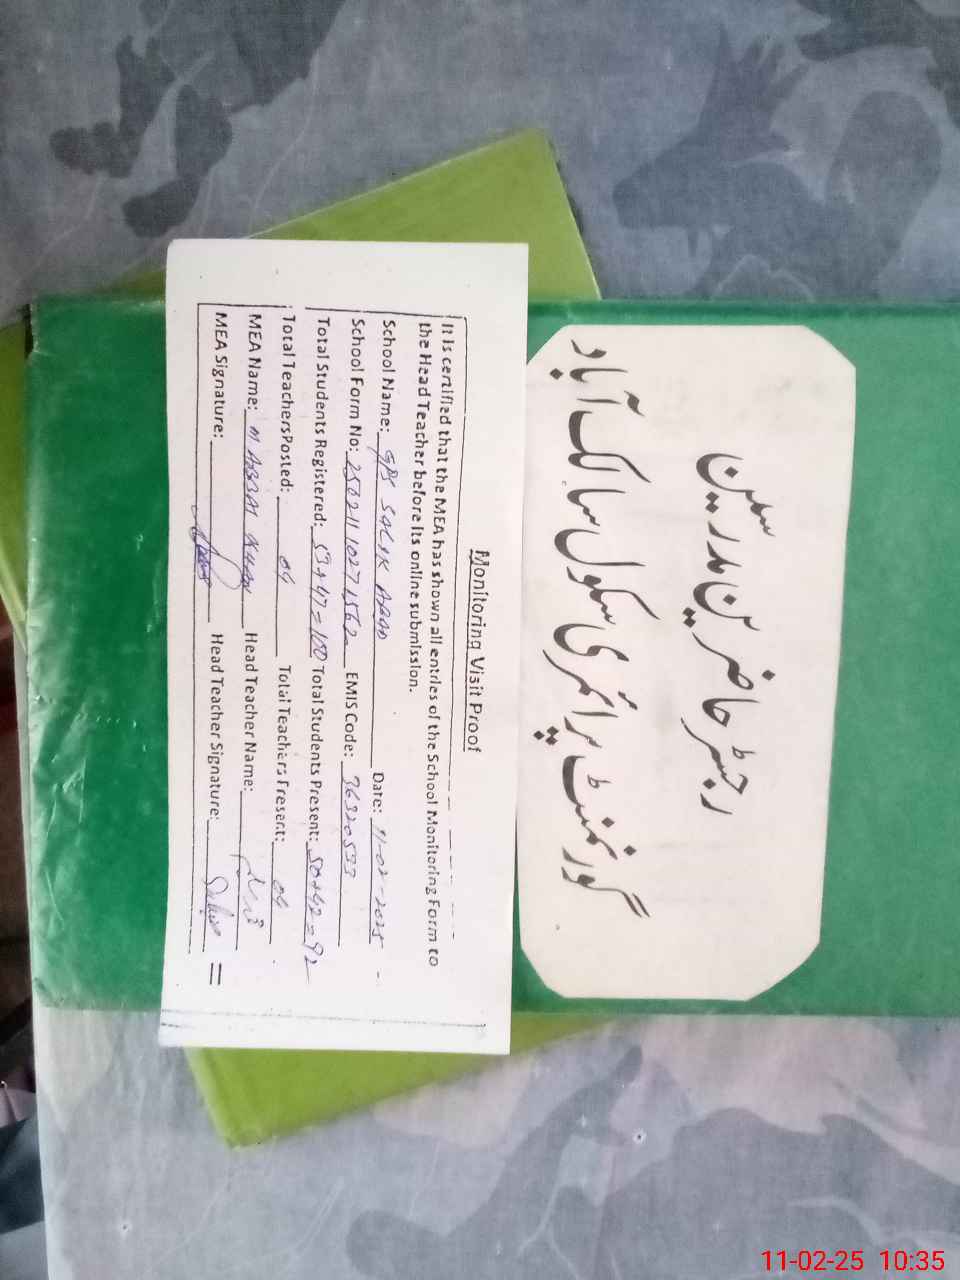 رجسٹر حاضرین مدرسین
گورنمنٹ پرائمری سکول سالک آباد
Monitoring Visit Proof
It is certified that the MEA has shown all entries of the School Monitoring Form to
the Head Teacher before its online submission.
School Name: GPS SALIK ABAD Date: 11-02-2025
School Form No: 250211 1027 1562 EMIS Code: 36320533
Total Students Registered: 53+47=100 Total Students Present: 50+42=92
Total Teachers Posted: 04 Total Teachers Present: 04
MEA Name: M ABBAS KHAN Head Teacher Name:
MEA Signature: Head Teacher Signature:
11-02-25 10:35